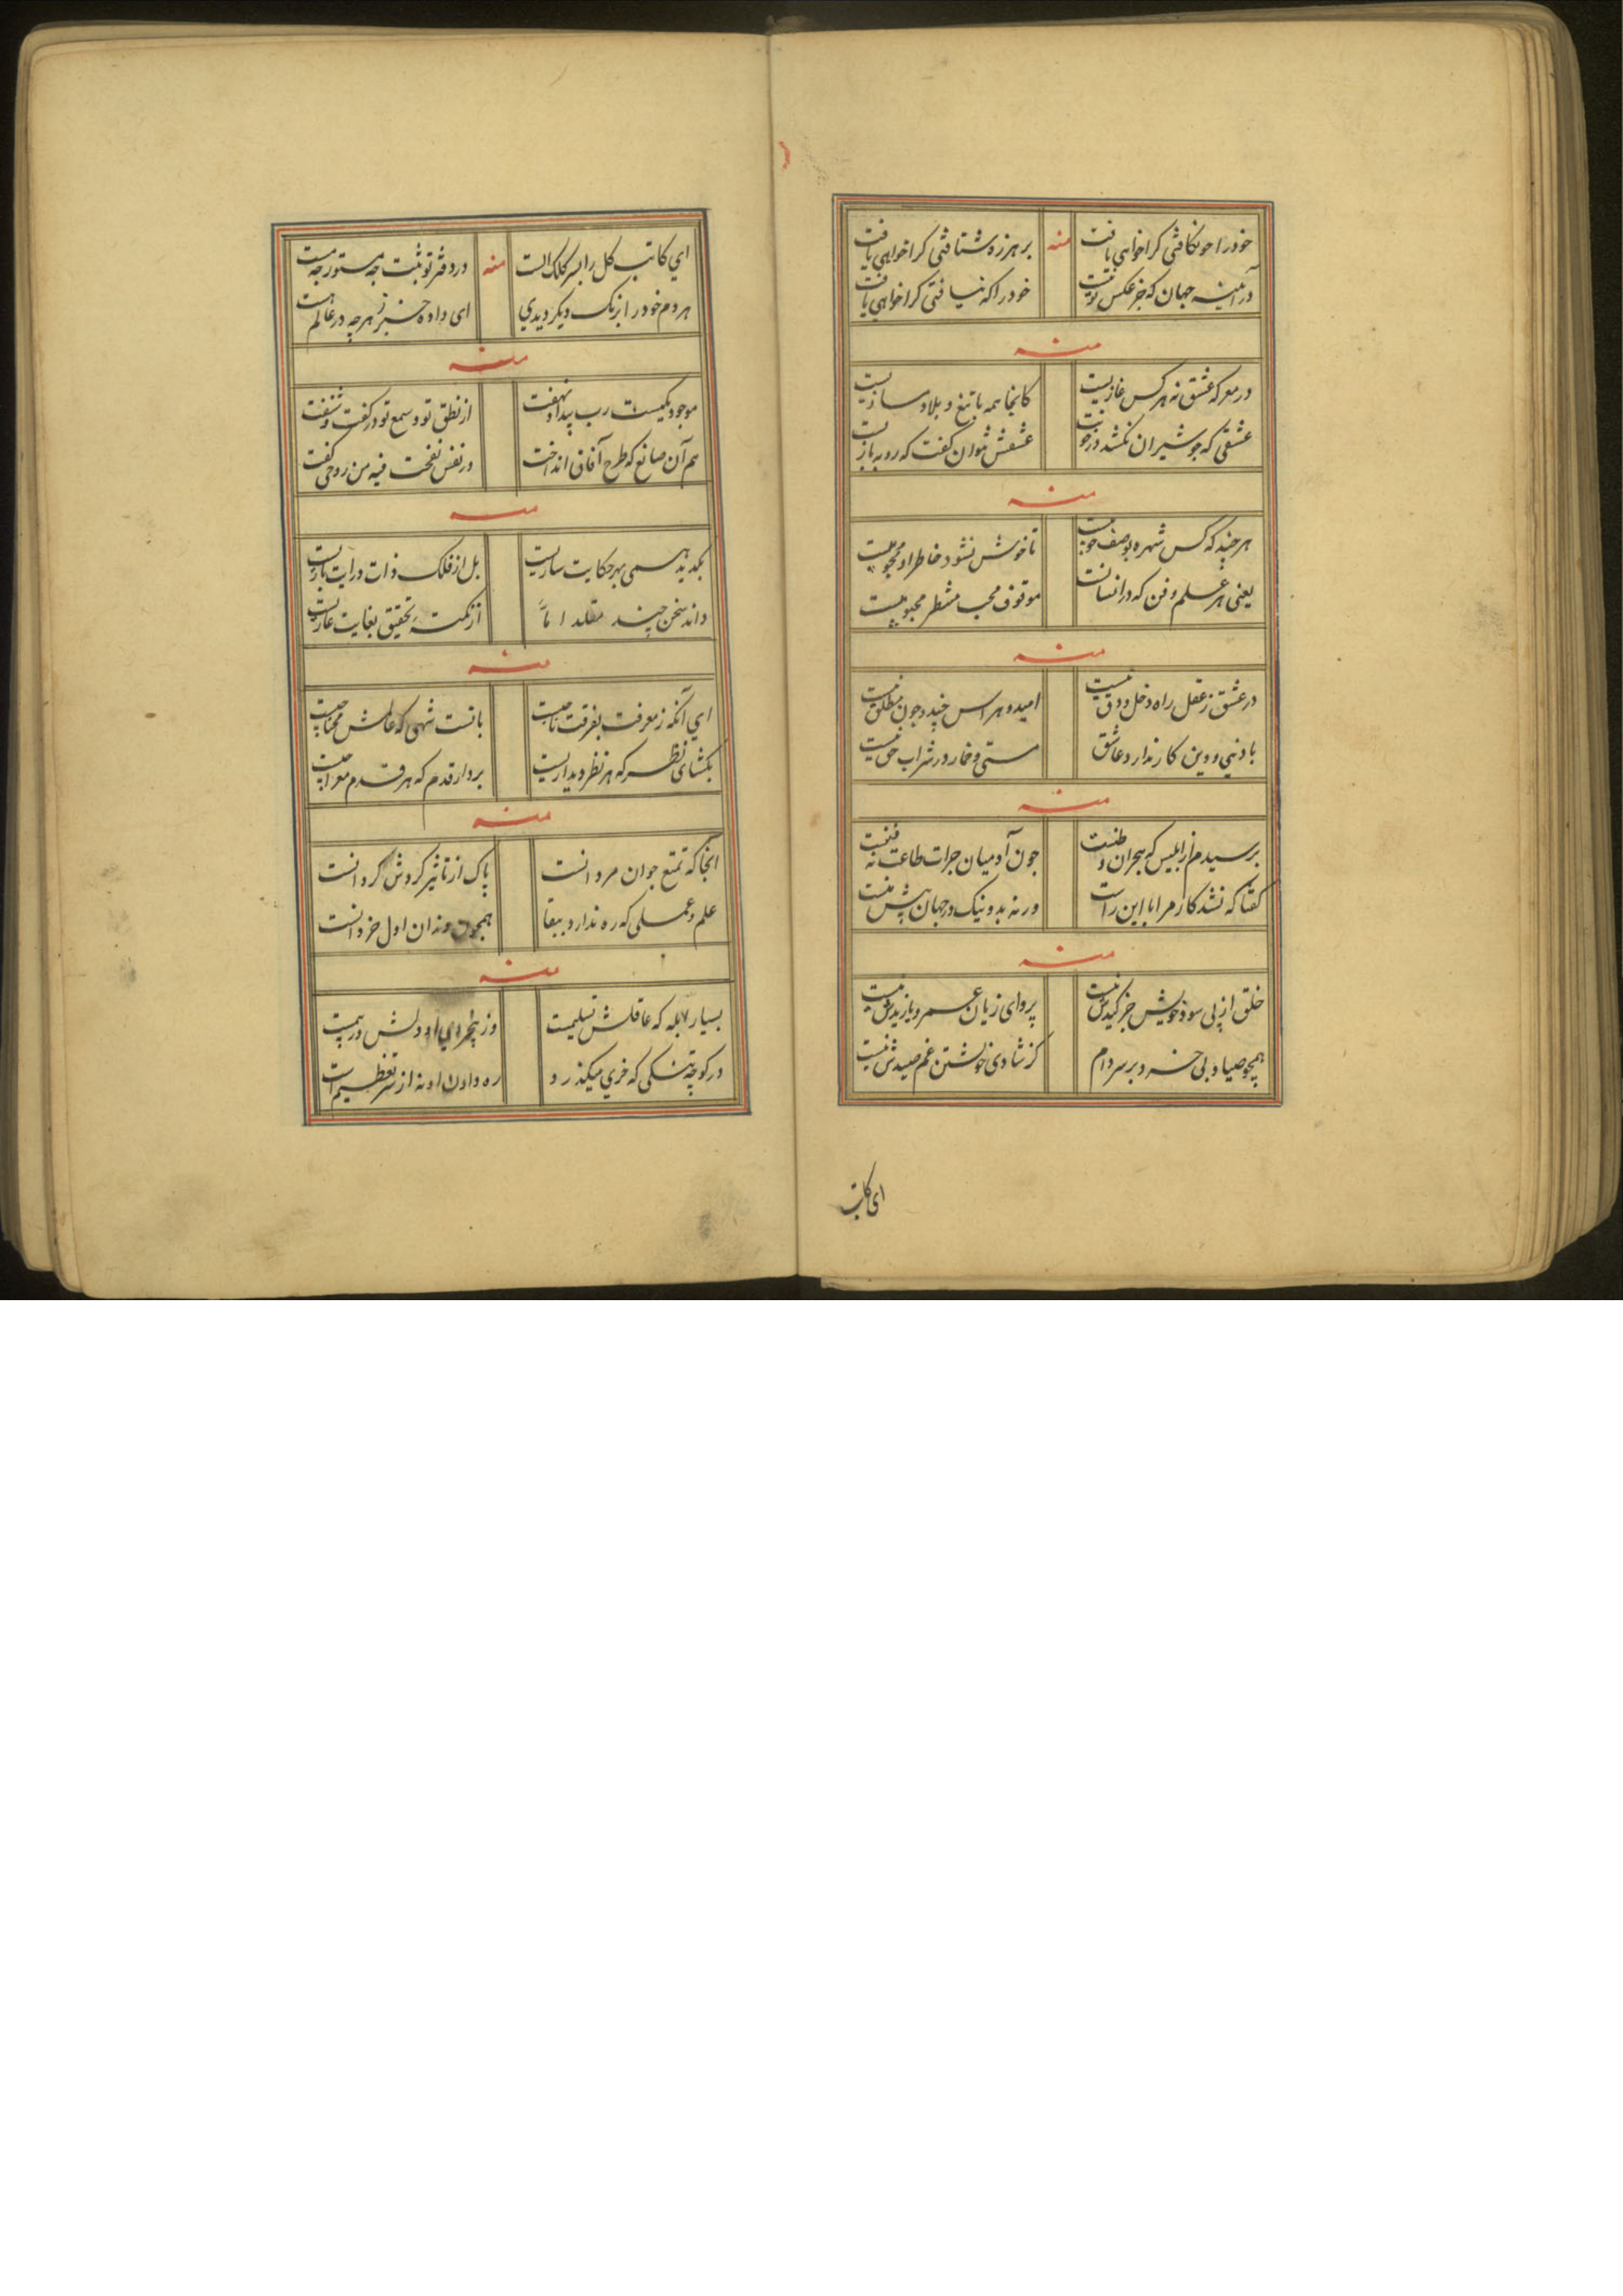 خودرا چو نکافتی کرا خواهی یافت
منه
بر هرزه شتافتی کرا خواهی یافت
در آئینه جهان که جز عکس تو نیست
خودرا که نیافتی کرا خواهی یافت
منه
در معرکه عشق نه هر کس غازیست
کانجا همه با تیغ و بلا دمسازیست
عشقی که چو شیران نکشد در خونت
عشقش نتوان گفت که روبه بازیست
منه
هر چند که کس شهره بوصف خوبیست
تا خوش نشود خاطر او محجوبیست
یعنی هر علم و فن که در انسانست
موقوف محب منتظر محبوبیست
منه
در عشق ز عقل راه دخل و دق نیست
امید و هراس چند و چون مطلق نیست
با دنیی و دین کار ندارد عاشق
مستی و خمار در شراب حق نیست
منه
پرسیدم از ابلیس که هجران وطنست
چون آدمیان جرات طاعت نه فنست
گفتا که نشد کار مرا با این راست
ورنه بد و نیک در جهان پیش منست
منه
خلق از پی سود خویش جز کیدش نیست
پروای زیان عمرو یا زیدش نیست
همچو صیاد بی خرد بر سر دام
کز شادی خویشتن غم صیدش نیست
ای کاتب
ای کاتب کل را بسر کلک الست
منه
در دفتر تو ثبت چه مستور چه مست
هر دم خودرا برنک دیکر دیدی
ای داده خبر ز هر چه در عالم هست
منه
موجود یکیست رب پیدا و نهفت
از نطق تو و سمع تو در گفت و شنفت
هم آن صانع که طرح آفاق انداخت
در نفس نفخت فیه من روحی گفت
منه
بهر حکایت ساریست
بل از فلک ذات و رایت باریست
داند سخن چند مقلد اما
از نکته تحقیق بغایت عاریست
منه
ای آنکه ز معرفت بفرقت تاجیست
با تست شهی که عالمش محتاجیست
بکشای نظر که هر نظر دیداریست
بردار قدم که هر قدم معراجیست
منه
انجا که تمتع جوان مردانست
پاک از تاثیر گردش گردانست
علم و عملی که ره ندارد ببقا
همچون دندان اول خردانست
منه
بسیار ابله که عاقلش تسلیمست
وز او دلش در بیمست
در کوچه تنکی که خری میکذرد
ره دادن او نه از سر تعظیم است